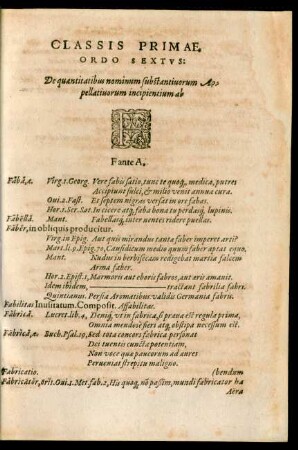 CLASSIS PRIMAE.
ORDO SEXTVS:
De quantitatibus nominum substantiuorum Ap-
pellatiuorum incipientium ab
F
F ante A.
Făbă,æ. Virg.1.Georg. Vere fabis satio, tunc te quoq, medica, putres
Accipiunt sulci, & milio venit annua cura.
Oui.2.Fast. Et septem nigras versat in ore fabas.
Hor.2.Ser.Sat. In cicere atq, faba bona tu perdasq, lupinis.
Făbēllă. Mant. Fabellasq, inter uentes ridere puellas.
Făbĕr, in obliquis producitur.
Virg in Epig. Aut quis mirandus tanta faber imperet arti?
Mart.li.9.Epig.70, Canditatum medio quum faber aptat equo.
Mant. Nudus in herbifluas redigebat martia falces
Arma faber.
Hor.2.Epist.1, Marmora aut eboris fabros, aut æris amauit.
Idem ibidem, tractant fabrilia fabri.
Quintianus. Persia Aromatibus validu Germania fabru.
Fabilitas Inusitatum. Composit. Affabilitas.
Făbrĭcă. Lucret.lib.4, Deniq, vt in fabrica, si praua est regula prima,
Omnia mendose fieri atq, obstipa necessum est.
Făbrĭcă,æ. Buch.Psal.19, Sed tota concors fabrica personat
Dei tuentis cuncta potentiam,
Non voce quæ paucorum ad aures
Perueniat strepitu maligno.
Fabricatio. (bendum
Făbrĭcātŏr, ōris. Oui.1.Met.fab.2, His quoq, nō passim, mundi fabricator ha
Aëra